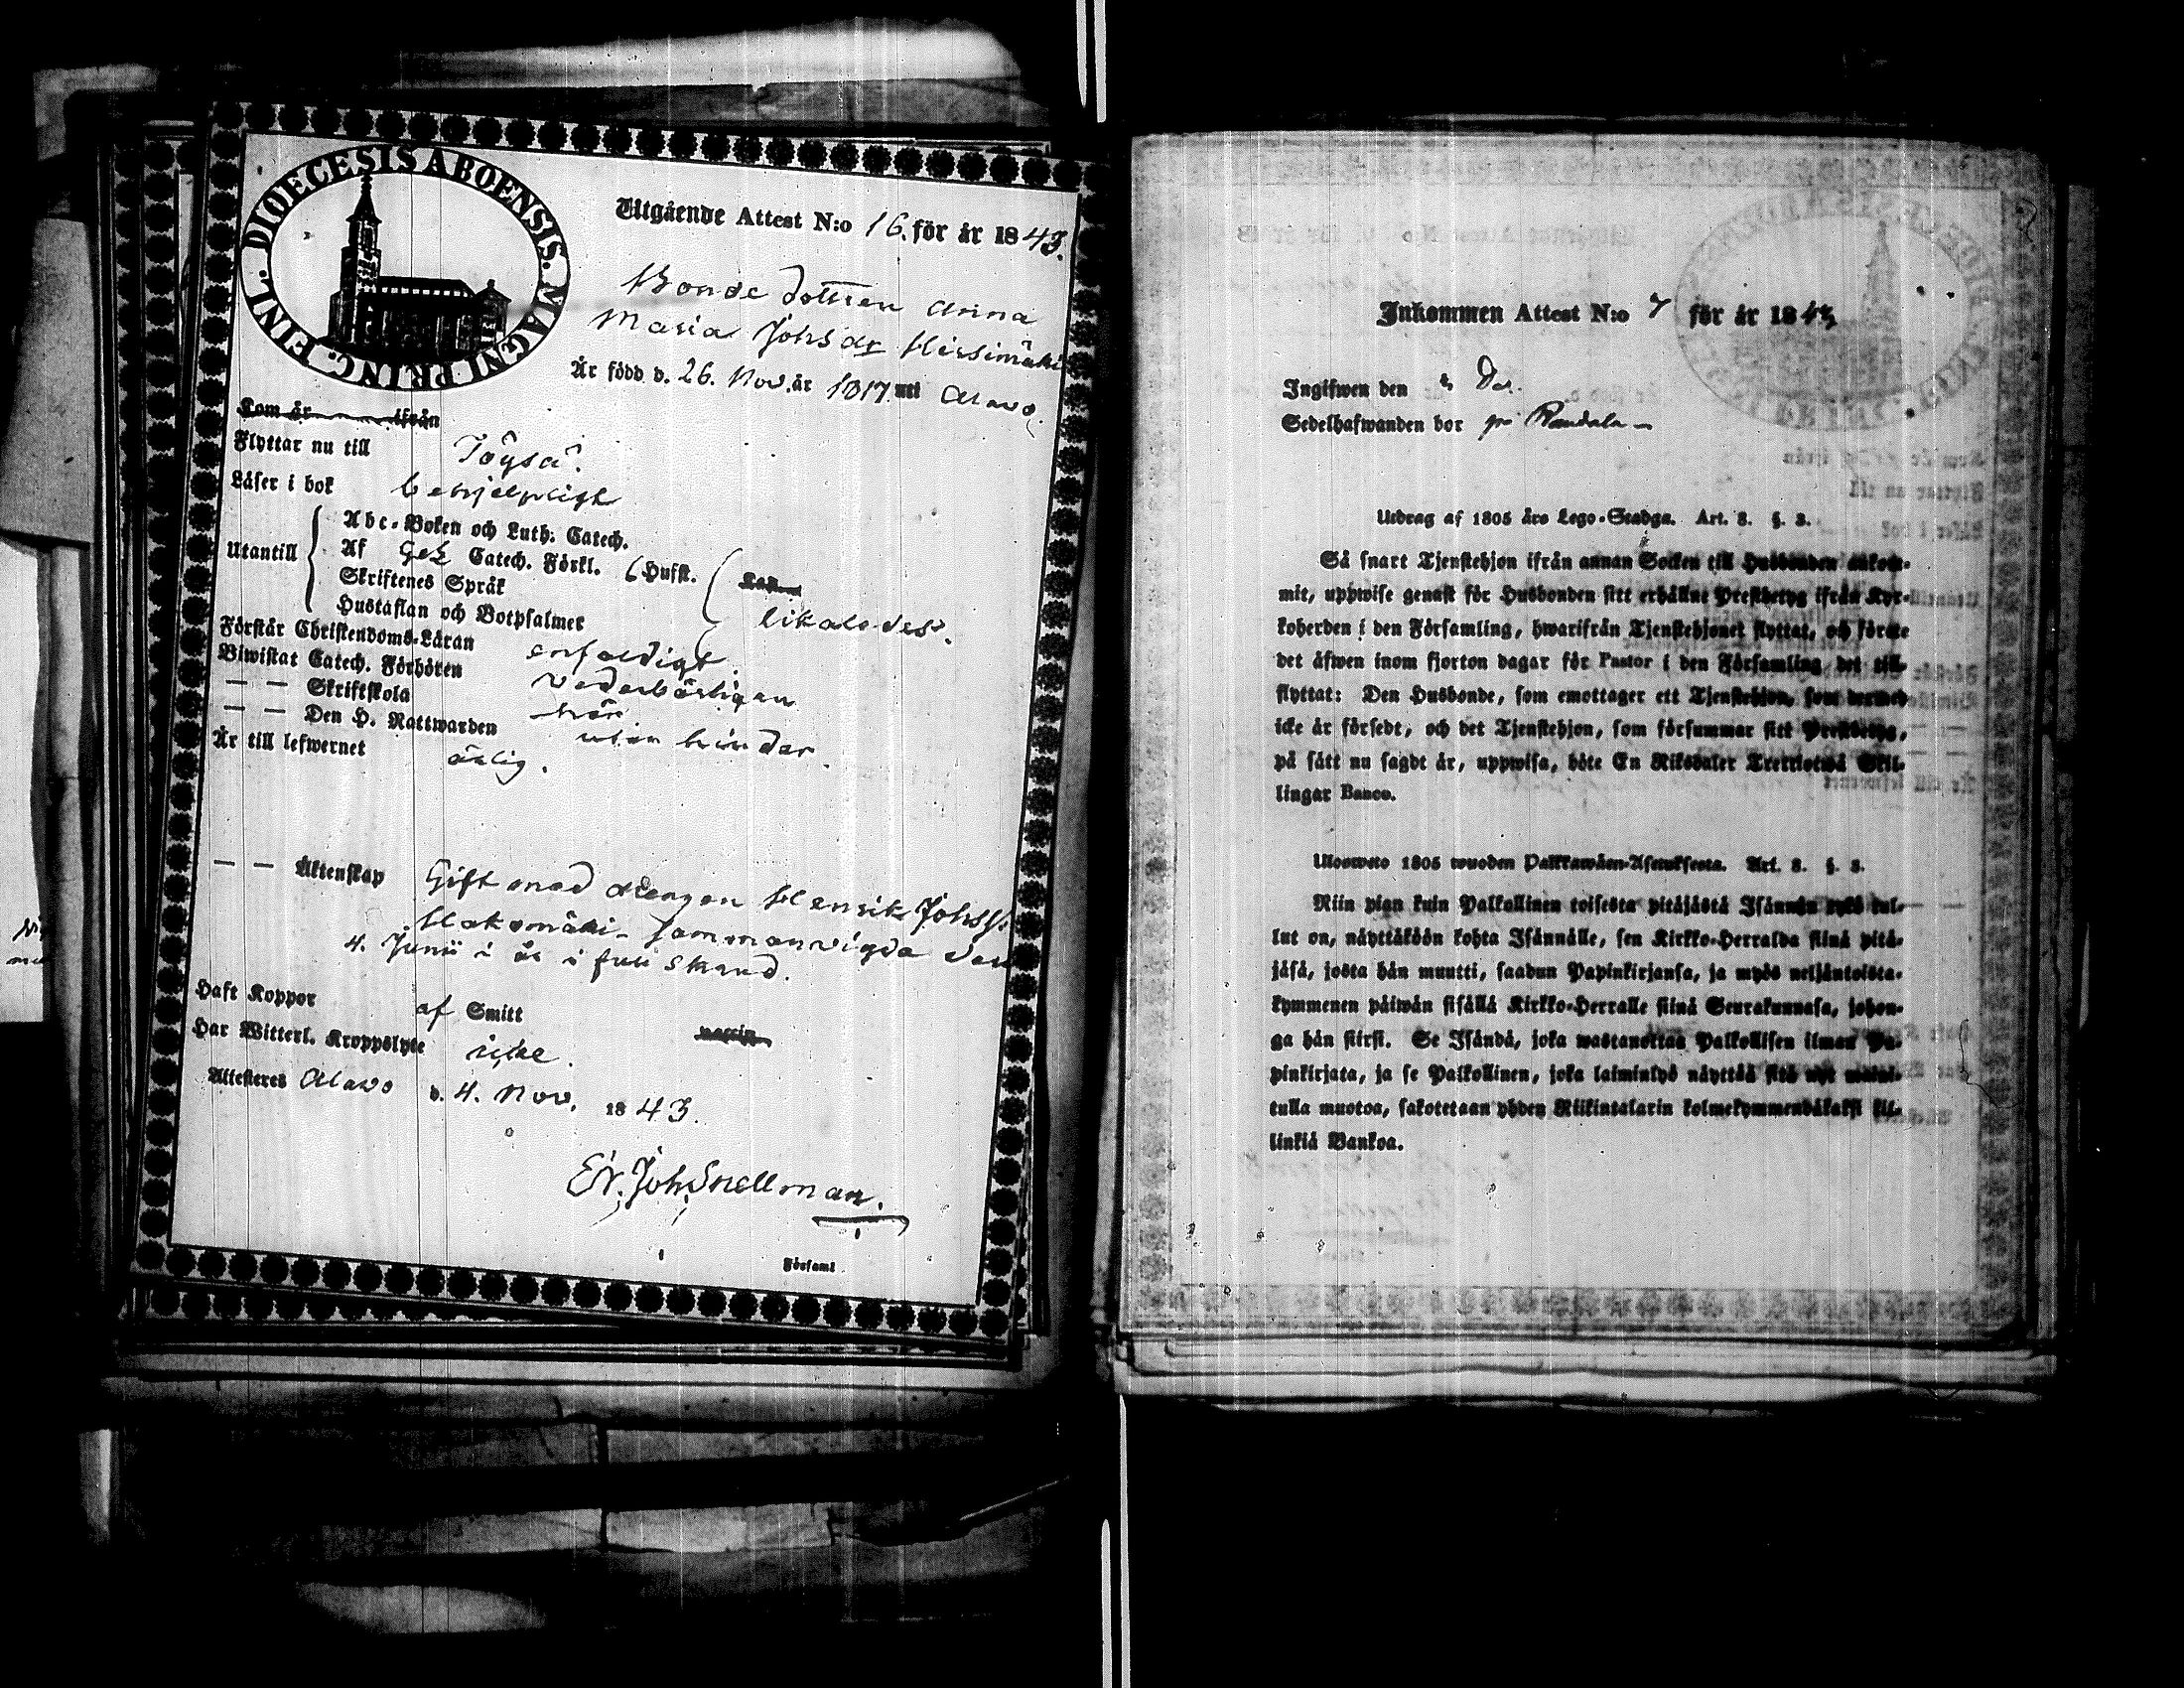 DIOECESIS ABOENSIS. MAGNI PRINC. FINL.
Utgående Attest N:o 16. för år 1843.
Bonde dottren Anna
Maria Johsdr Hirsimäki
Är född d. 26. Nov. år 1817 uti Alavo.
Kom år ifrån
Flyttar nu till Töysä.
Läser i bok behjelpligt
Utantill
Abc-Boken och Luth. Catech.
Af Catech. Förkl. Husft.
Skriftenes Språk
Hustaflan och Botpsalmer
likaledes.
Förstår Christendoms-Läran enfaldigt.
Biwistat Catech. Förhören vederbörligen
— — Skriftskola här
— — Den H. Nattwarden utan hinder.
Är till lefwernet ärlig.
— — Äktenskap Gift med drengen Henrik Johss.
Hakomäki sammanvigda den
4. Junii i år i full stånd.
Haft Koppor af Smitt
Har Witterl. Kroppslyte icke.
Attesteres Alavo d. 4. Nov. 1843.
Er. Joh. Snellman.
Församl
Inkommen Attest N:o 7 för år 1843
Ingifwen den
Sedelhafwanden bor på
Utdrag af 1805 års Lego-Stadga. Art. 8. §. 3.
Så snart Tjenstehjon ifrån annan Socken till Husbonden ankom-
mit, uppwise genast för Husbonden sitt erhållne Prestbetyg ifrån Kyr-
koherden i den Församling, hwarifrån Tjenstehjonet flyttat, och förete
det äfwen inom fjorton dagar för Pastor i den Församling det till-
flyttat: Den Husbonde, som emottager ett Tjenstehjon, som dermed
icke är försedt, och det Tjenstehjon, som försummar sitt Prestbetyg,
på sätt nu sagdt är, uppwisa, böte En Riksdaler Trettiotwå Skil-
lingar Banco.
Ulosweto 1805 wuoden Palkkawäen-Asetuksesta. Art. 8. §. 3.
Niin pian kuin Palkollinen toisesta pitäjästä Isännän tykö tul-
lut on, näyttäköön kohta Isännälle, sen Kirkko-Herralda siinä pitä-
jäsä, josta hän muutti, saadun Papinkirjansa, ja myös neljäntoista-
kymmenen päiwän sisällä Kirkko-Herralle siinä Seurakunnasa, johon-
ga hän siirsi. Se Isändä, joka wastanottaa Palkollisen ilman Pa-
pinkirjata, ja se Palkollinen, joka laiminlyö näyttää sitä nyt maini-
tulla muotoa, sakotetaan yhden Riikintalarin kolmekymmendäkaksi kil-
linkiä Bankoa.